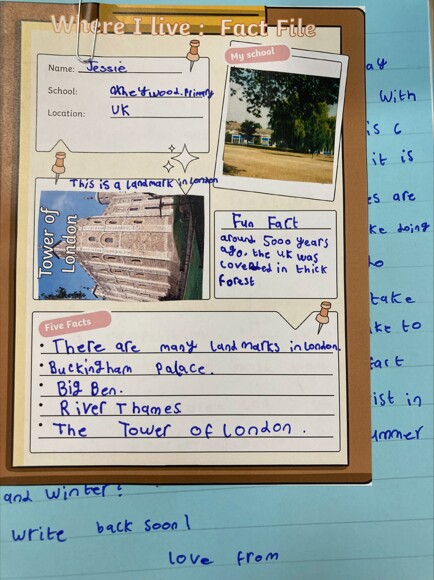 Where I live : Fact File
Name: Jessie
School: Primary
Location: UK
My school
This is a landmark in London
Tower of
London
Fun Fact
around 5000 years
ago, the UK was
covereded in thick
forest
Five Facts
There are many landmarks in london.
Buckingham Palace.
Big Ben.
River Thames
The Tower of london.
ay
with
is c
it is
es are
ke doing
take
ke to
ist in
ummer
and winter?
write back soon!
love from